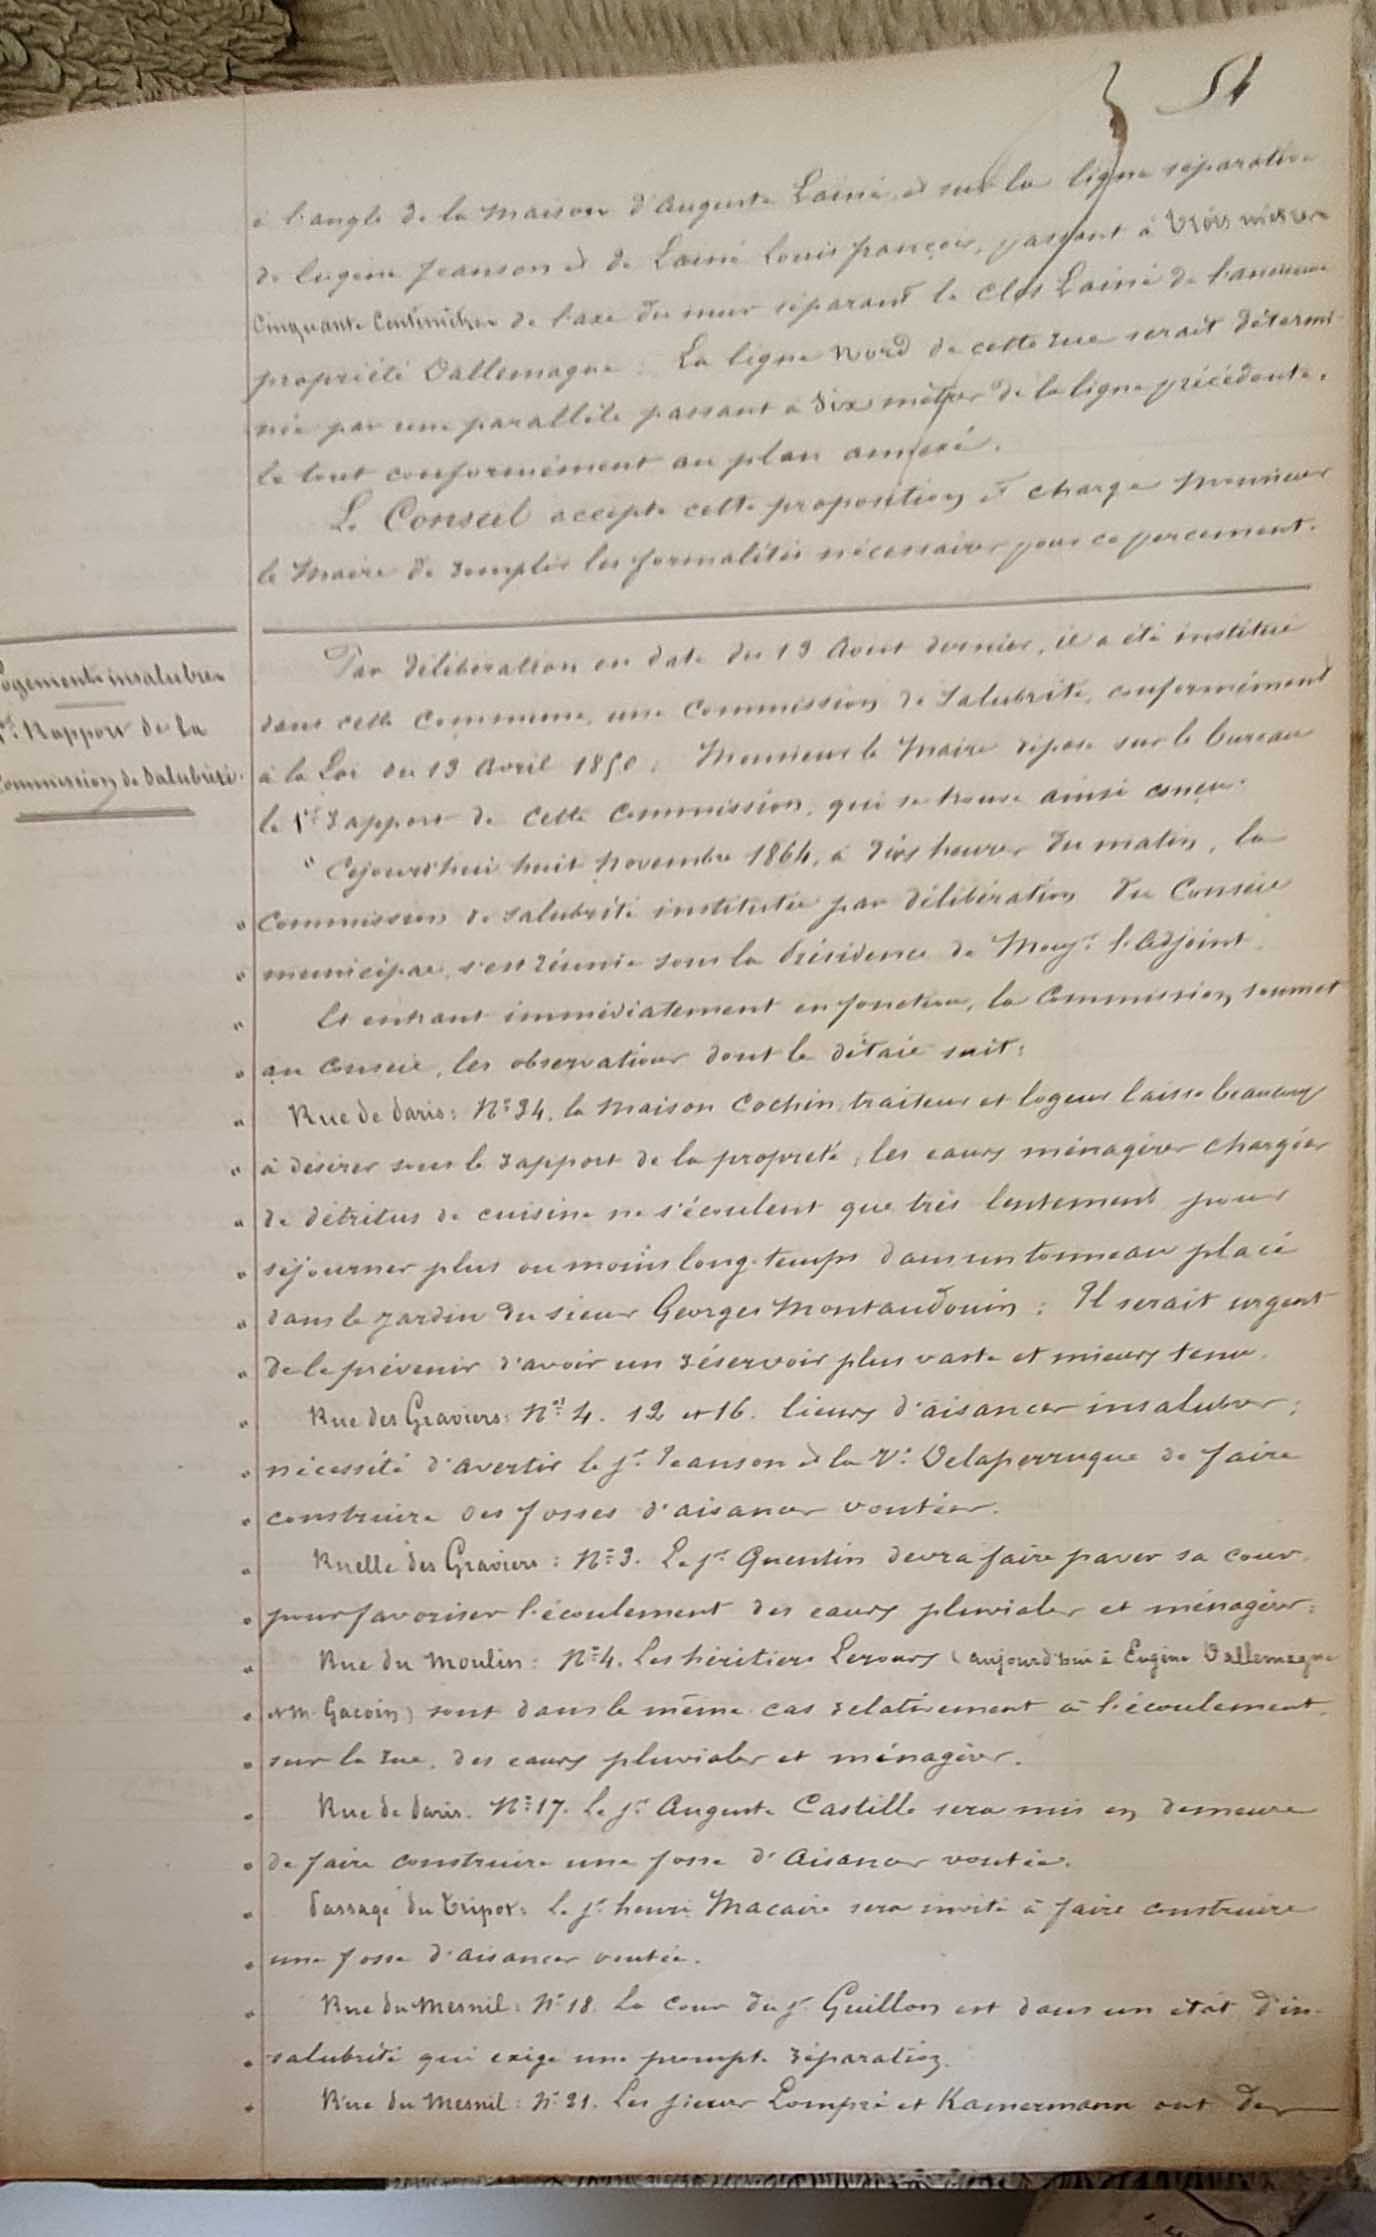 54
à l'angle de la maison d'Auguste Lainé, et sur la ligne séparative
de Eugène Jeanson et de Lainé Louis françois, passant à trois mètres
cinquante centimètres de l'axe du mur séparant le clos Lainé de l'ancienne
propriété Dallemagne. La ligne Nord de cette rue serait détermi-
née par une parallèle passant à six mètres de la ligne précédente.
le tout conformément au plan annexé.
Le Conseil accepte cette proposition et charge Monsieur
le Maire de remplir les formalités nécessaires pour ce percement.
Logements insalubres
1er Rapport de la
Commission de Salubrité.
Par délibération en date du 13 Août dernier, il a été institué
dans cette Commune, une Commission de Salubrité, conformément
à la Loi du 13 Avril 1850. Monsieur le Maire dépose sur le bureau
le 1er rapport de cette Commission, qui se trouve ainsi conçu.
" Cejourd'hui huit Novembre 1864, à dix heures du matin, la
" Commission de salubrité instituée par délibération du Conseil
" municipal, s'est réunie sous la Présidence de l'Adjoint.
" Et entrant immédiatement en fonction, la Commission soumet
" au Conseil, les observations dont le détail suit:
" Rue de Paris: N° 34. la Maison Cochin, traiteur et logeur laisse beaucoup
" à désirer sous le rapport de la propreté, les eaux ménagères chargées
" de détritus de cuisine ne s'écoulent que très lentement pour
" séjourner plus ou moins long-temps dans un tonneau placé
" dans le jardin du sieur Georges Montaudouin: Il serait urgent
" de le prévenir d'avoir un réservoir plus vaste et mieux tenu.
" Rue des Graviers: Nos 4. 12 et 16. lieux d'aisances insalubres;
" nécessité d'avertir le Sr Jeanson et la Ve Delaperruque de faire
" construire des fosses d'aisances voutées.
" Ruelle des Graviers: N° 3. Le Sr Quentin devra faire paver sa cour
" pour favoriser l'écoulement des eaux pluviales et ménagères.
" Rue du Moulin: N° 4. Les héritiers Leroux (aujourd'hui à Eugène Dallemagne
" et M. Gacoin) sont dans le même cas relativement à l'écoulement,
" sur la rue, des eaux pluviales et ménagères.
" Rue de Paris. N° 17. Le Sr Auguste Castille sera mis en demeure
" de faire construire une fosse d'aisances voutée.
" Passage du Tripot: le Sr henri Macaire sera invité à faire construire
" une fosse d'aisances voutée.
" Rue du Mesnil: N° 18. La cour du Sr Guillon est dans un état d'in-
" salubrité qui exige une prompte réparation.
" Rue du Mesnil: N° 21. Les sieurs Lompré et Kamermann ont des